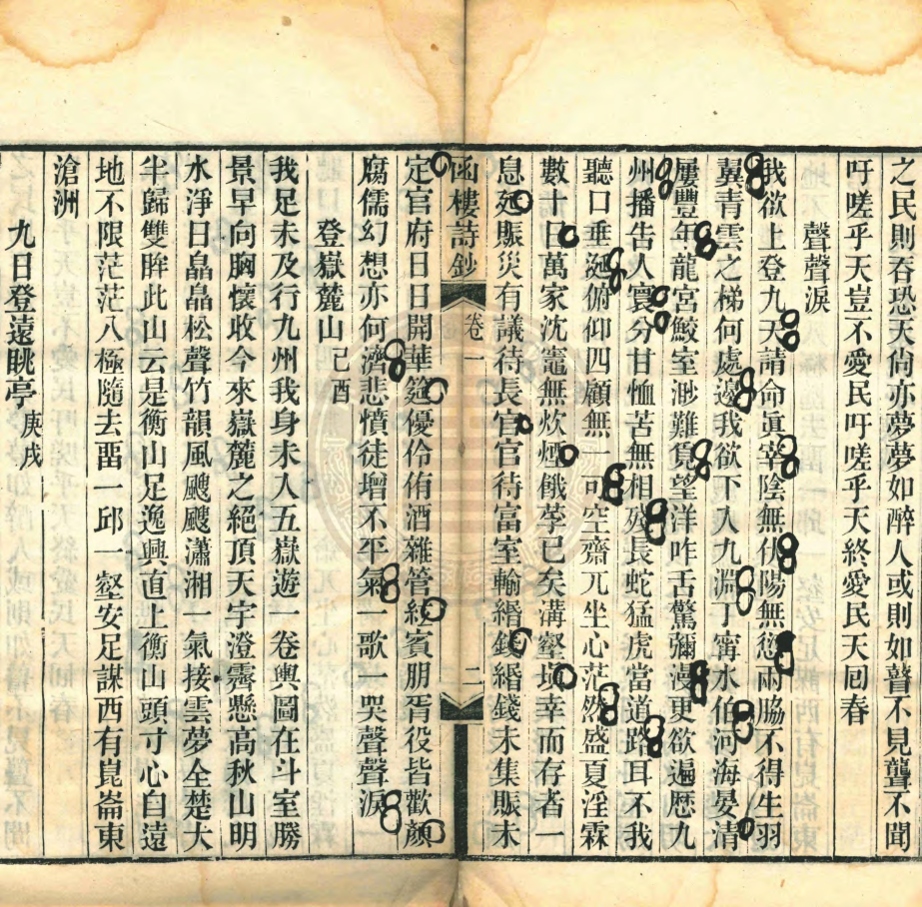 之民則吞恐天尙亦夢夢如醉人或則如瞽不見聾不聞
吁嗟乎天豈不愛民吁嗟乎天終愛民天回春
聲聲淚
我欲上登九天請命眞宰陰無伏陽無愆兩脇不得生羽
翼靑雲之梯何處邊我欲下入九淵丁寗水伯河海晏清
屢豐年龍宮鮫室渺難覓望洋咋舌驚彌漫更欲遍歷九
州播告人寰分甘恤苦無相殘長蛇猛虎當道路耳不我
聽口垂涎俯仰四顧無一可空齋兀坐心茫然盛夏淫霖
數十日萬家沈竈無炊煙餓莩已矣溝壑塡幸而存者一
息延賑災有議待長官官待富室輸緡錢緡錢未集賑未
函樓詩鈔
卷一
二
定官府日日開華筵優伶侑酒雜管絃賓朋胥役皆歡顏
腐儒幻想亦何濟悲憤徒增不平氣一歌一哭聲聲淚
登嶽麓山 己酉
我足未及行九州我身未入五嶽遊一卷輿圖在斗室勝
景早向胸懷收今來嶽麓之絕頂天宇澄霽懸高秋山明
水淨日皛皛松聲竹韻風颼颼瀟湘一氣接雲夢全楚大
半歸雙眸此山云是衡山足逸興直上衡山頭寸心自遠
地不限茫茫八極隨去畱一邱一壑安足謀西有崑崙東
滄洲
九日登遠眺亭 庚戌